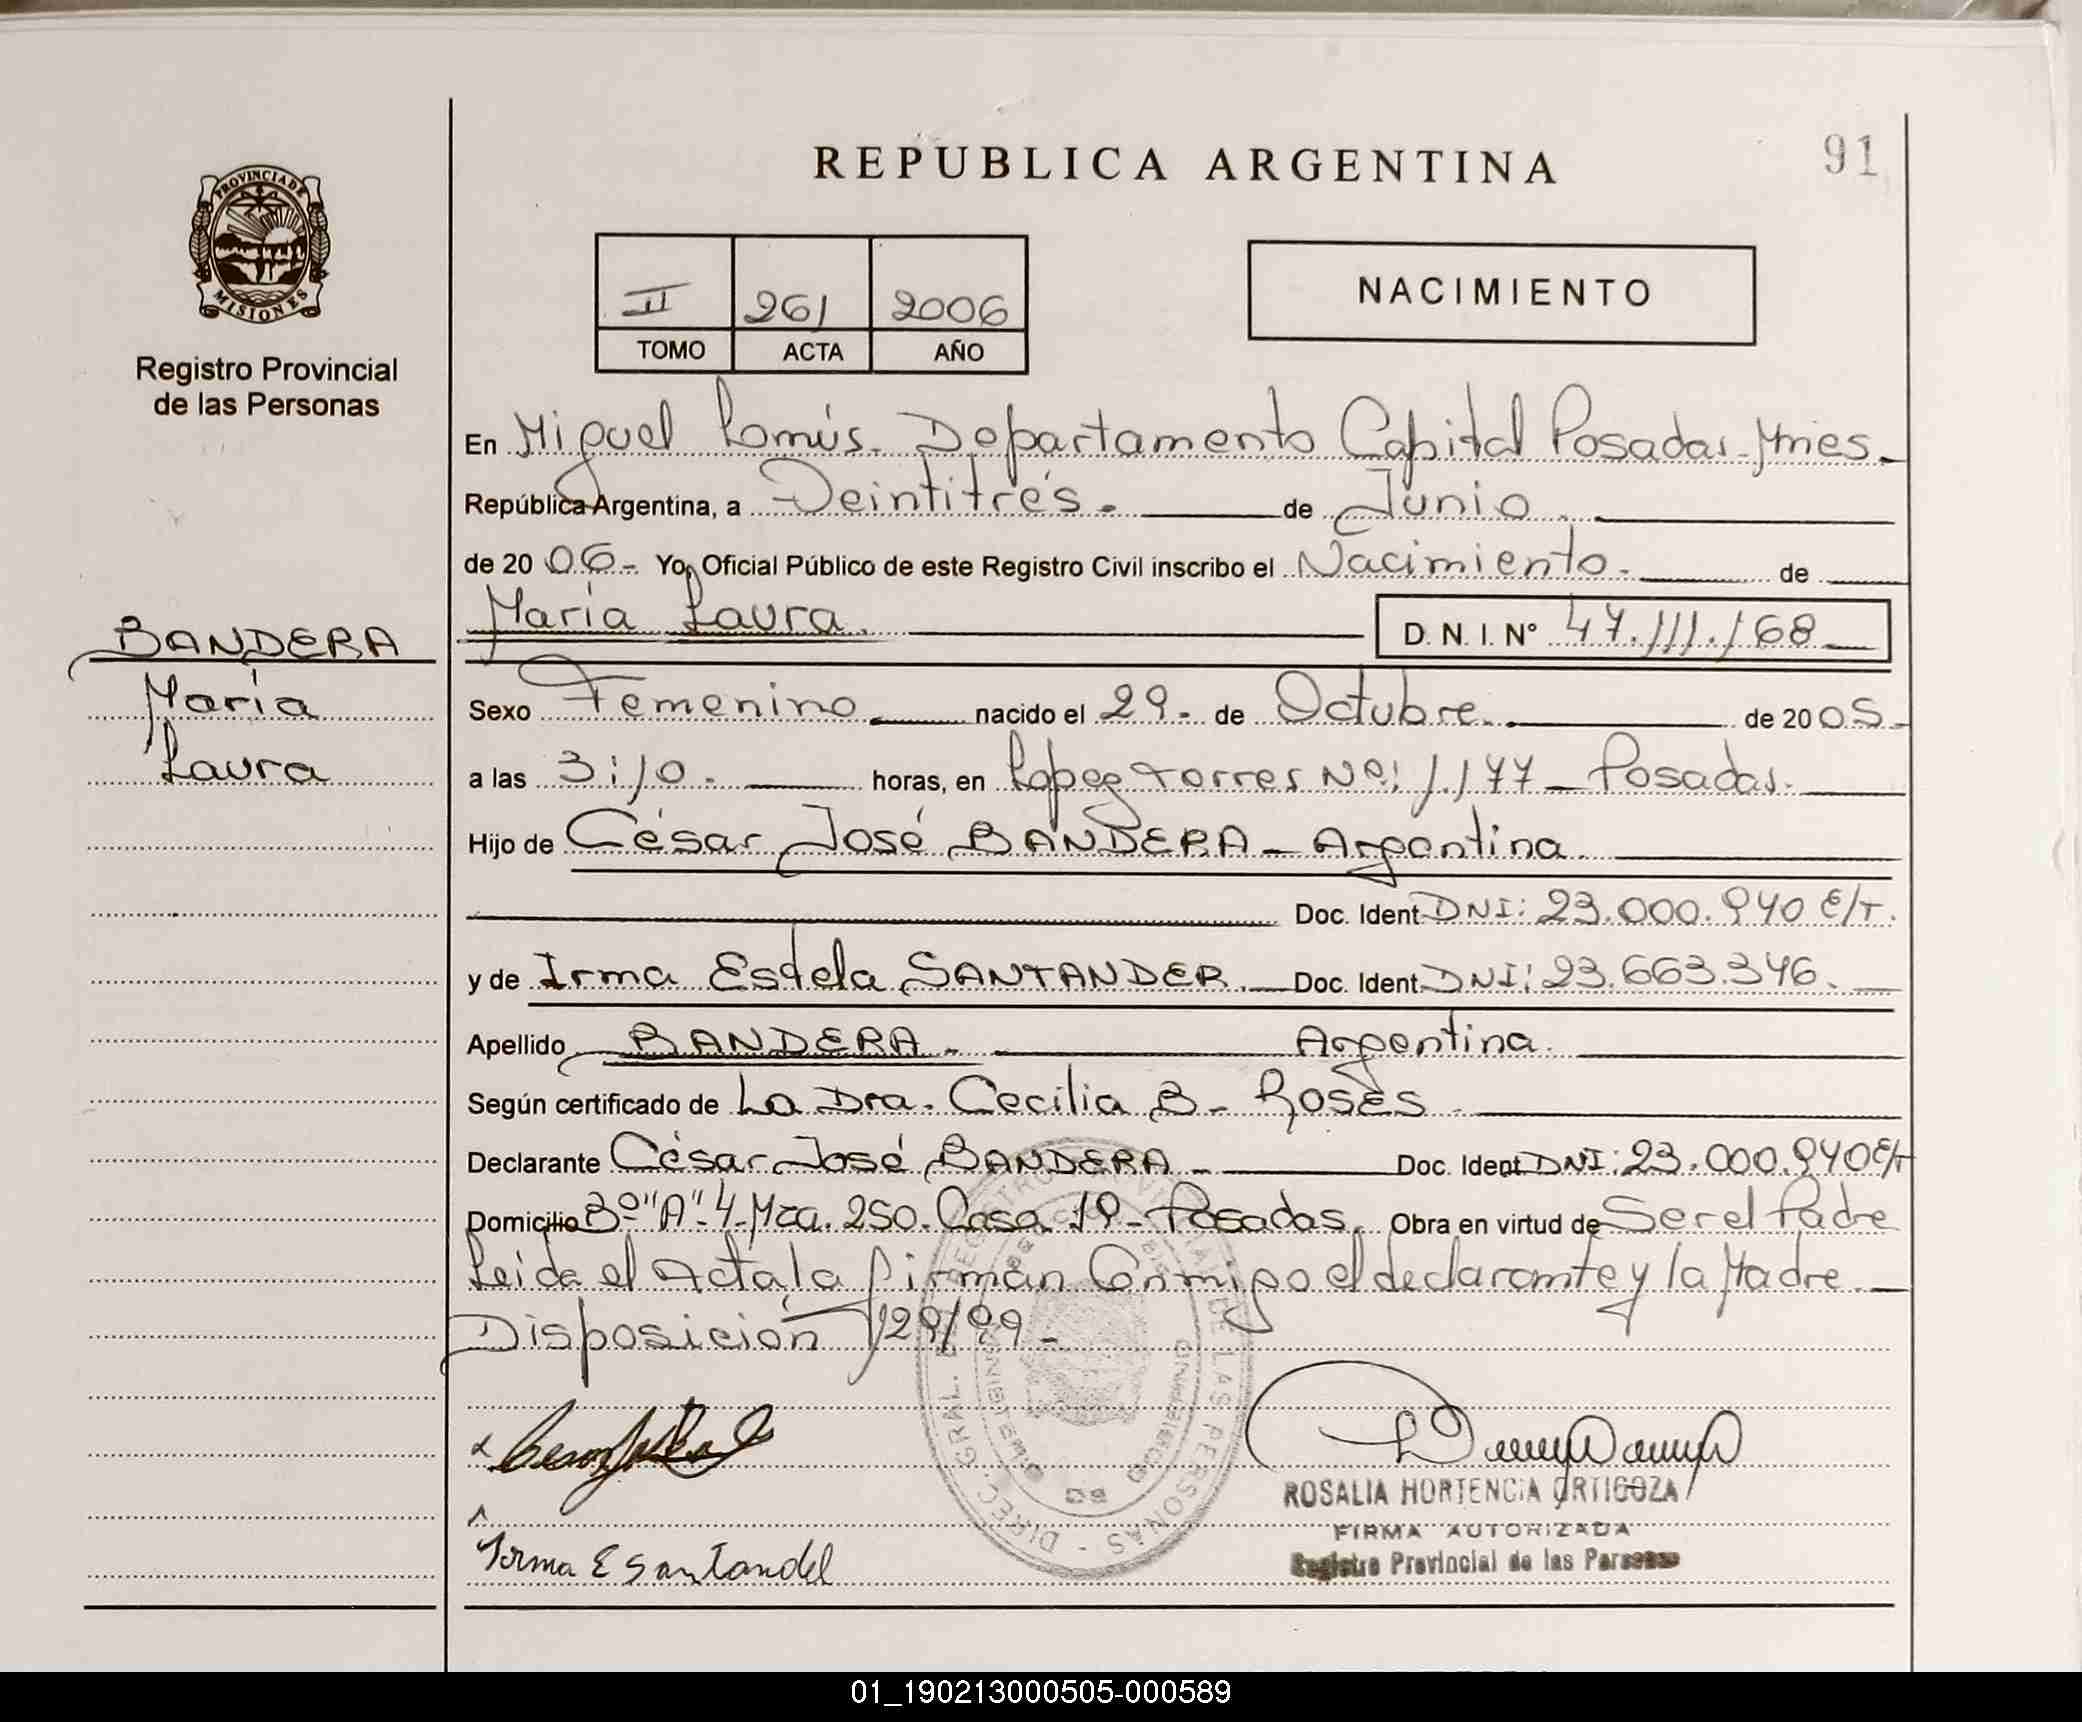 REPUBLICA ARGENTINA
91
PROVINCIA DE
MISIONES
Registro Provincial
de las Personas
II 261 2006
TOMO ACTA AÑO
NACIMIENTO
En Miguel Lanús. Departamento Capital Posadas Mnes.
República Argentina, a Veintitrés. de Junio
de 20 06. Yo, Oficial Público de este Registro Civil inscribo el Nacimiento. de
María Laura. D. N. I. Nº 47.111.168
BANDERA
María
Laura
Sexo Femenino nacido el 29. de Octubre. de 20 05.
a las 3:10. horas, en Lopez Torres Nº: 1.177 Posadas.
Hijo de César José BANDERA - Argentina.
Doc. Ident DNI: 23.000.940 E/T.
y de Irma Estela SANTANDER. Doc. Ident. DNI: 23.663.346.
Apellido BANDERA. Argentina.
Según certificado de La Dra. Cecilia B. Roses
Declarante César José BANDERA Doc. Ident DNI: 23.000.940 E/T
Domicilio Bº "A" 4. Mza. 250. Casa 19 - Posadas. Obra en virtud de Ser el Padre
Leida el Acta, la firman Conmigo el declarante y la Madre.
Disposición 129/99.
Irma E Santander
ROSALIA HORTENCIA ORTIGOZA
FIRMA AUTORIZADA
Registro Provincial de las Personas
DIREC. GRAL. DEL REGISTRO PROVINCIAL DE LAS PERSONAS
01_190213000505-000589